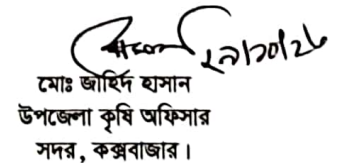 ২৯/১০/২৫
মোঃ জাহিদ হাসান
উপজেলা কৃষি অফিসার
সদর, কক্সবাজার।